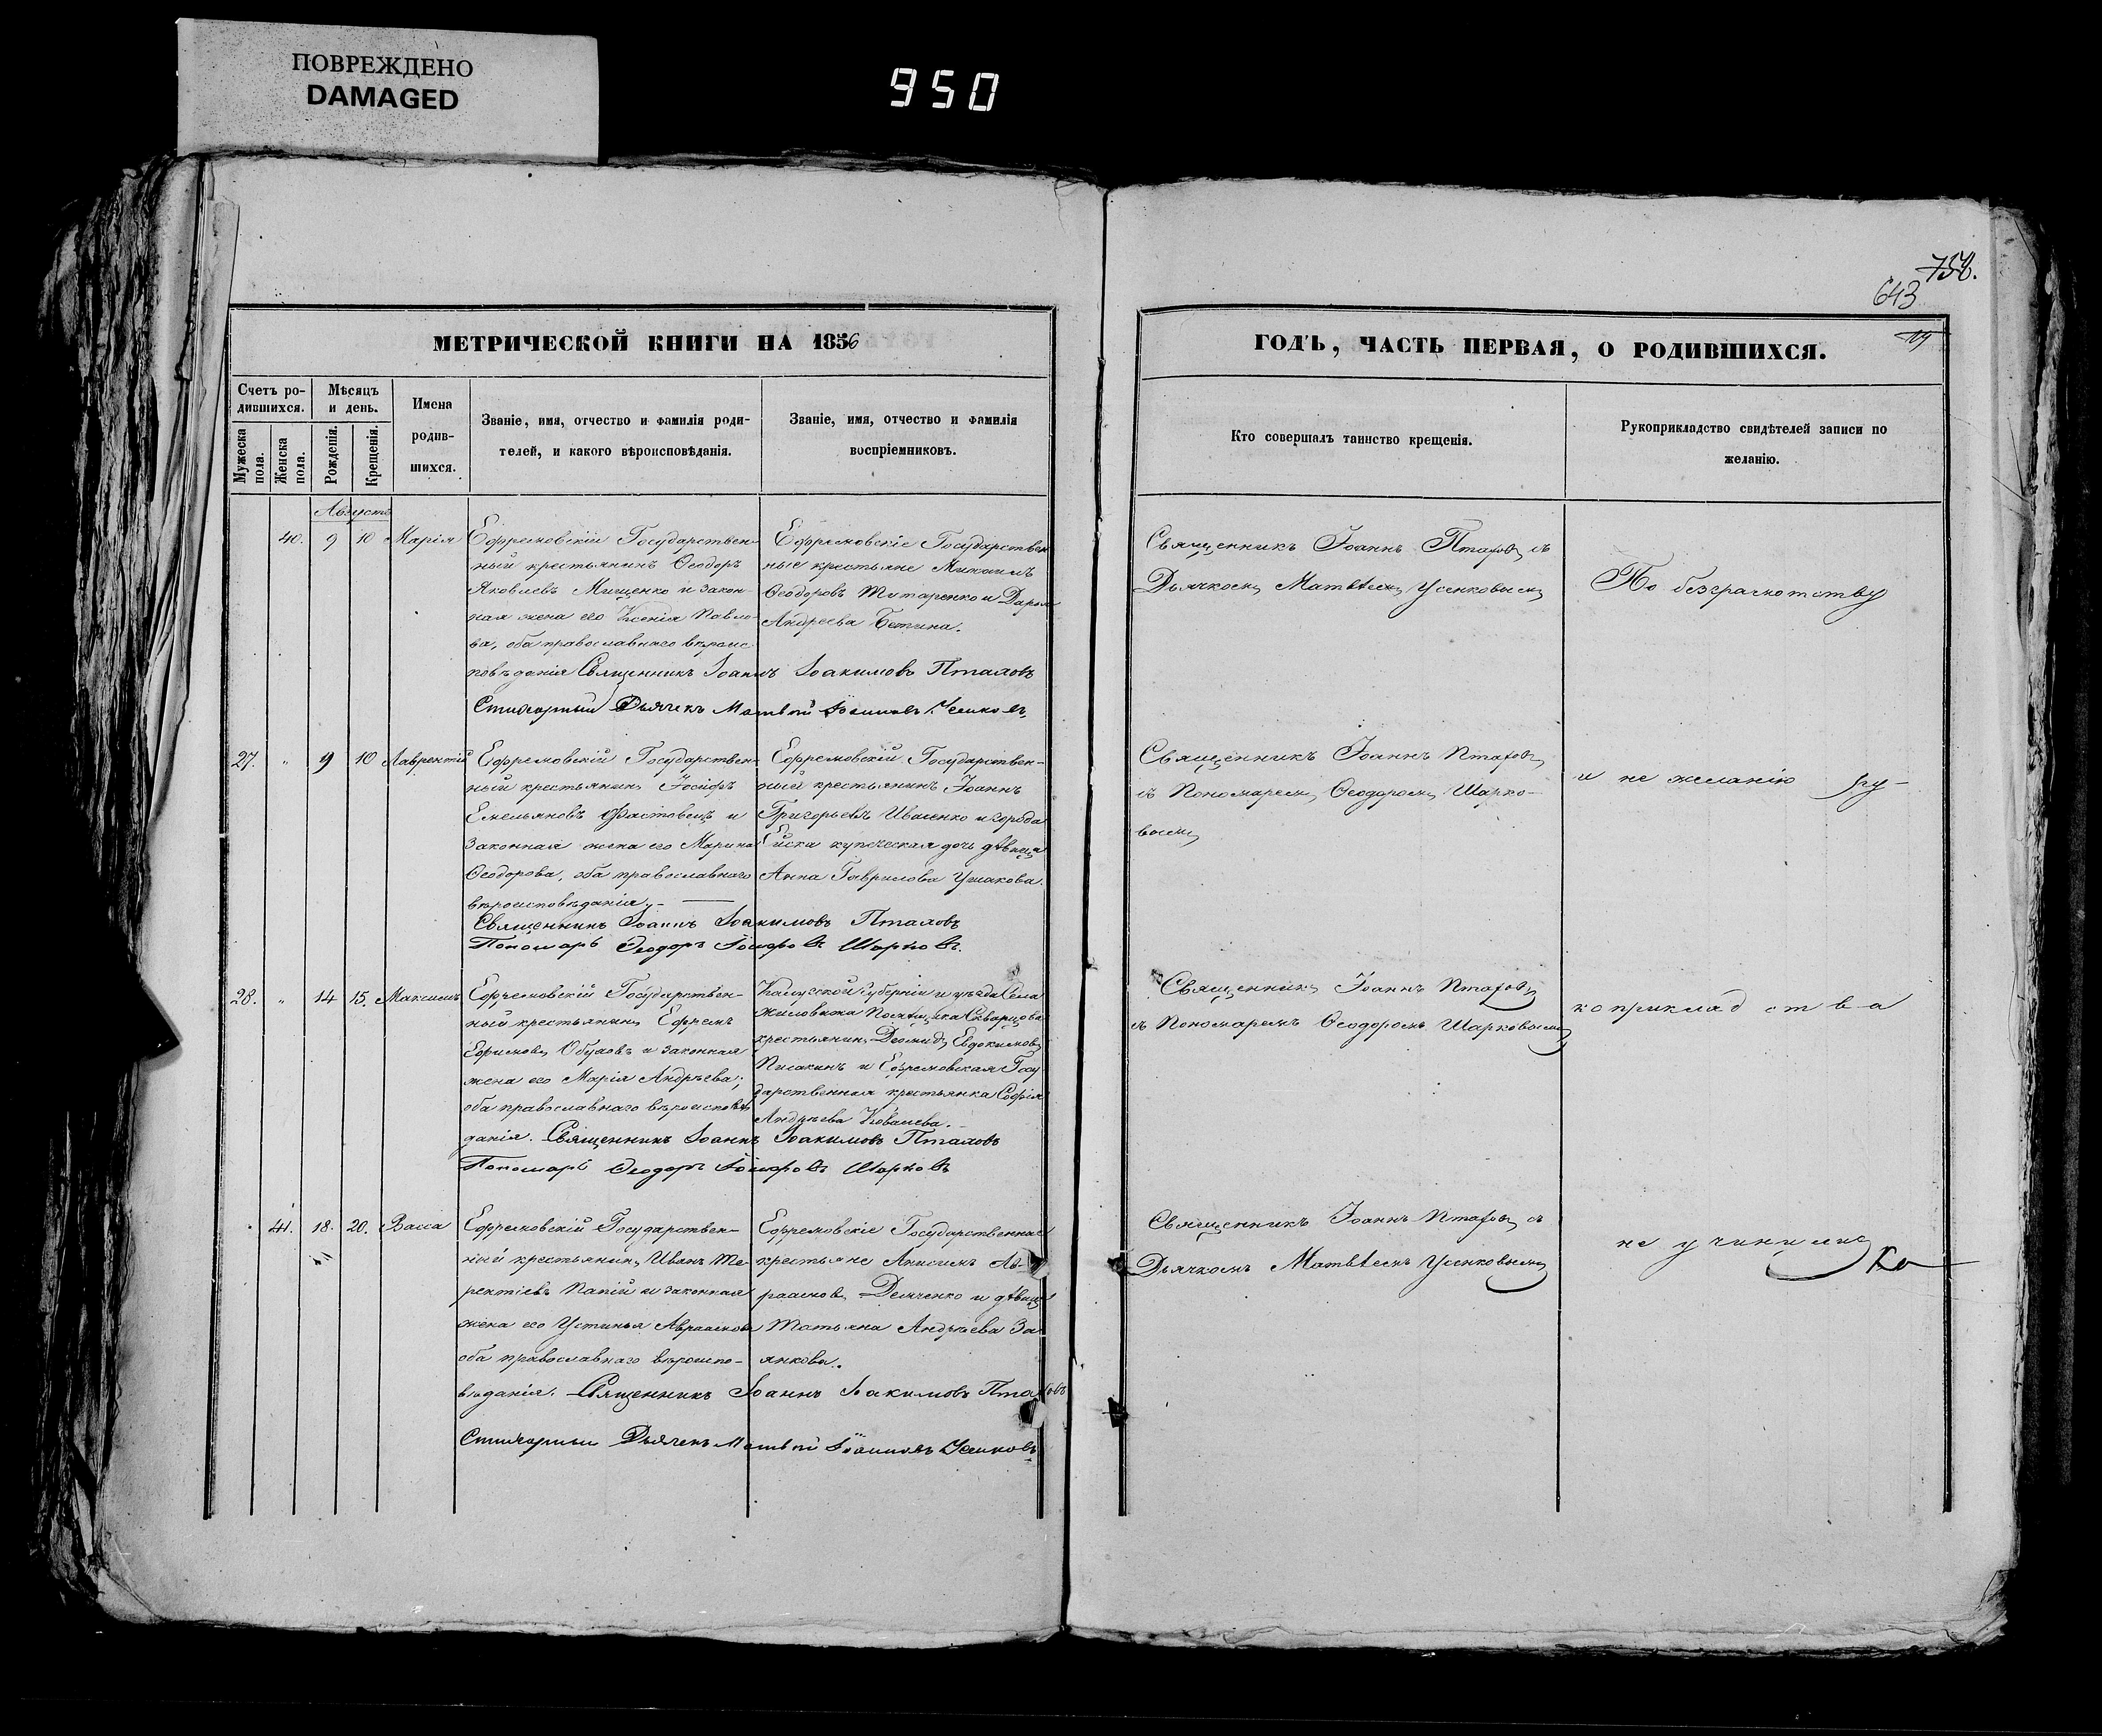 ПОВРЕЖДЕНО
DAMAGED
950
758.
643
19
МЕТРИЧЕСКОЙ КНИГИ НА 1856
ГОДЪ, ЧАСТЬ ПЕРВАЯ, О РОДИВШИХСЯ.
Счетъ ро-
дившихся.
Мѣсяцъ
и день.
Мужеска
пола.
Женска
пола.
Рожденія.
Крещенія.
Имена
родив-
шихся.
Званіе, имя, отчество и фамилія роди-
телей, и какого вѣроисповѣданія.
Званіе, имя, отчество и фамилія
воспріемниковъ.
Кто совершалъ таинство крещенія.
Рукоприкладство свидѣтелей записи по
желанію.
Августъ
40. 9 10 Марія
Ефремовскій Государствен-
ный крестьянинъ Ѳеодоръ
Яковлевъ Мищенко и закон-
ная жена его Ксенія Павло-
ва, оба православнаго вѣроис
повѣданія Священникъ Іоаннъ Іоакимовъ Птаховъ
Стихарный Дьячекъ Матвѣй Іоанновъ Усиковъ,
Ефремовскіе Государствен
ные крестьяне Михаилъ
Ѳеодоровъ Титаренко и Дарья
Андреева
Священникъ Іоаннъ Птаховъ съ
Дьячкомъ Матвѣемъ Усиковымъ
По безграмотству
27. " 9 10 Лаврентій
Ефремовскій Государствен-
ный крестьянинъ Іосифъ
Емельяновъ Фастовецъ и
законная жена его Марина
Ѳеодорова, оба православнаго
вѣроисповѣданія,
Священникъ Іоаннъ Іоакимовъ Птаховъ
Пономарь Ѳеодоръ Іосифовъ Шарковъ.
Ефремовскій Государствен-
ный крестьянинъ Іоаннъ
Григорьевъ Ивасенко и города
Ейска купеческая дочь дѣвица
Анна Гаврилова Ушакова.
Священникъ Іоаннъ Птаховъ
съ Пономаремъ Ѳеодоромъ Шарко-
вымъ
и не желанію ру-
28. " 14 15. Максимъ
Ефремовскій Государствен-
ный крестьянинъ Ефремъ
Ефимовъ Обуховъ и законная
жена его Марія Андрѣева;
оба православнаго вѣроисповѣ
данія. Священникъ Іоаннъ Іоакимовъ Птаховъ
Пономарь Ѳеодоръ Іосифовъ Шарковъ
Калужской губерніи и уѣзда Села
Помѣщика Скварцова
крестьянинъ Діомидъ Евдокимовъ
и Ефремовская Госу
дарственная крестьянка Софія
Андрѣева Ковалева.
Священникъ Іоаннъ Птаховъ
съ Пономаремъ Ѳеодоромъ Шарковымъ
коприкладства
41. 18. 20. Васса
Ефремовскій Государствен-
ный крестьянинъ Иванъ Те-
рентіевъ Папій и законная
жена его Устинья Авраамова
оба православнаго вѣроиспо-
вѣданія. Священникъ Іоаннъ Іоакимовъ Птаховъ
Стихарный Дьячекъ Матвѣй Іоанновъ Усиковъ,
Ефремовскіе Государственные
крестьяне Анисимъ Ав-
раамовъ Демченко и дѣвица
Татьяна Андрѣева За
янкова.
Священникъ Іоаннъ Птаховъ съ
Дьячкомъ Матвѣемъ Усиковымъ
не учинили